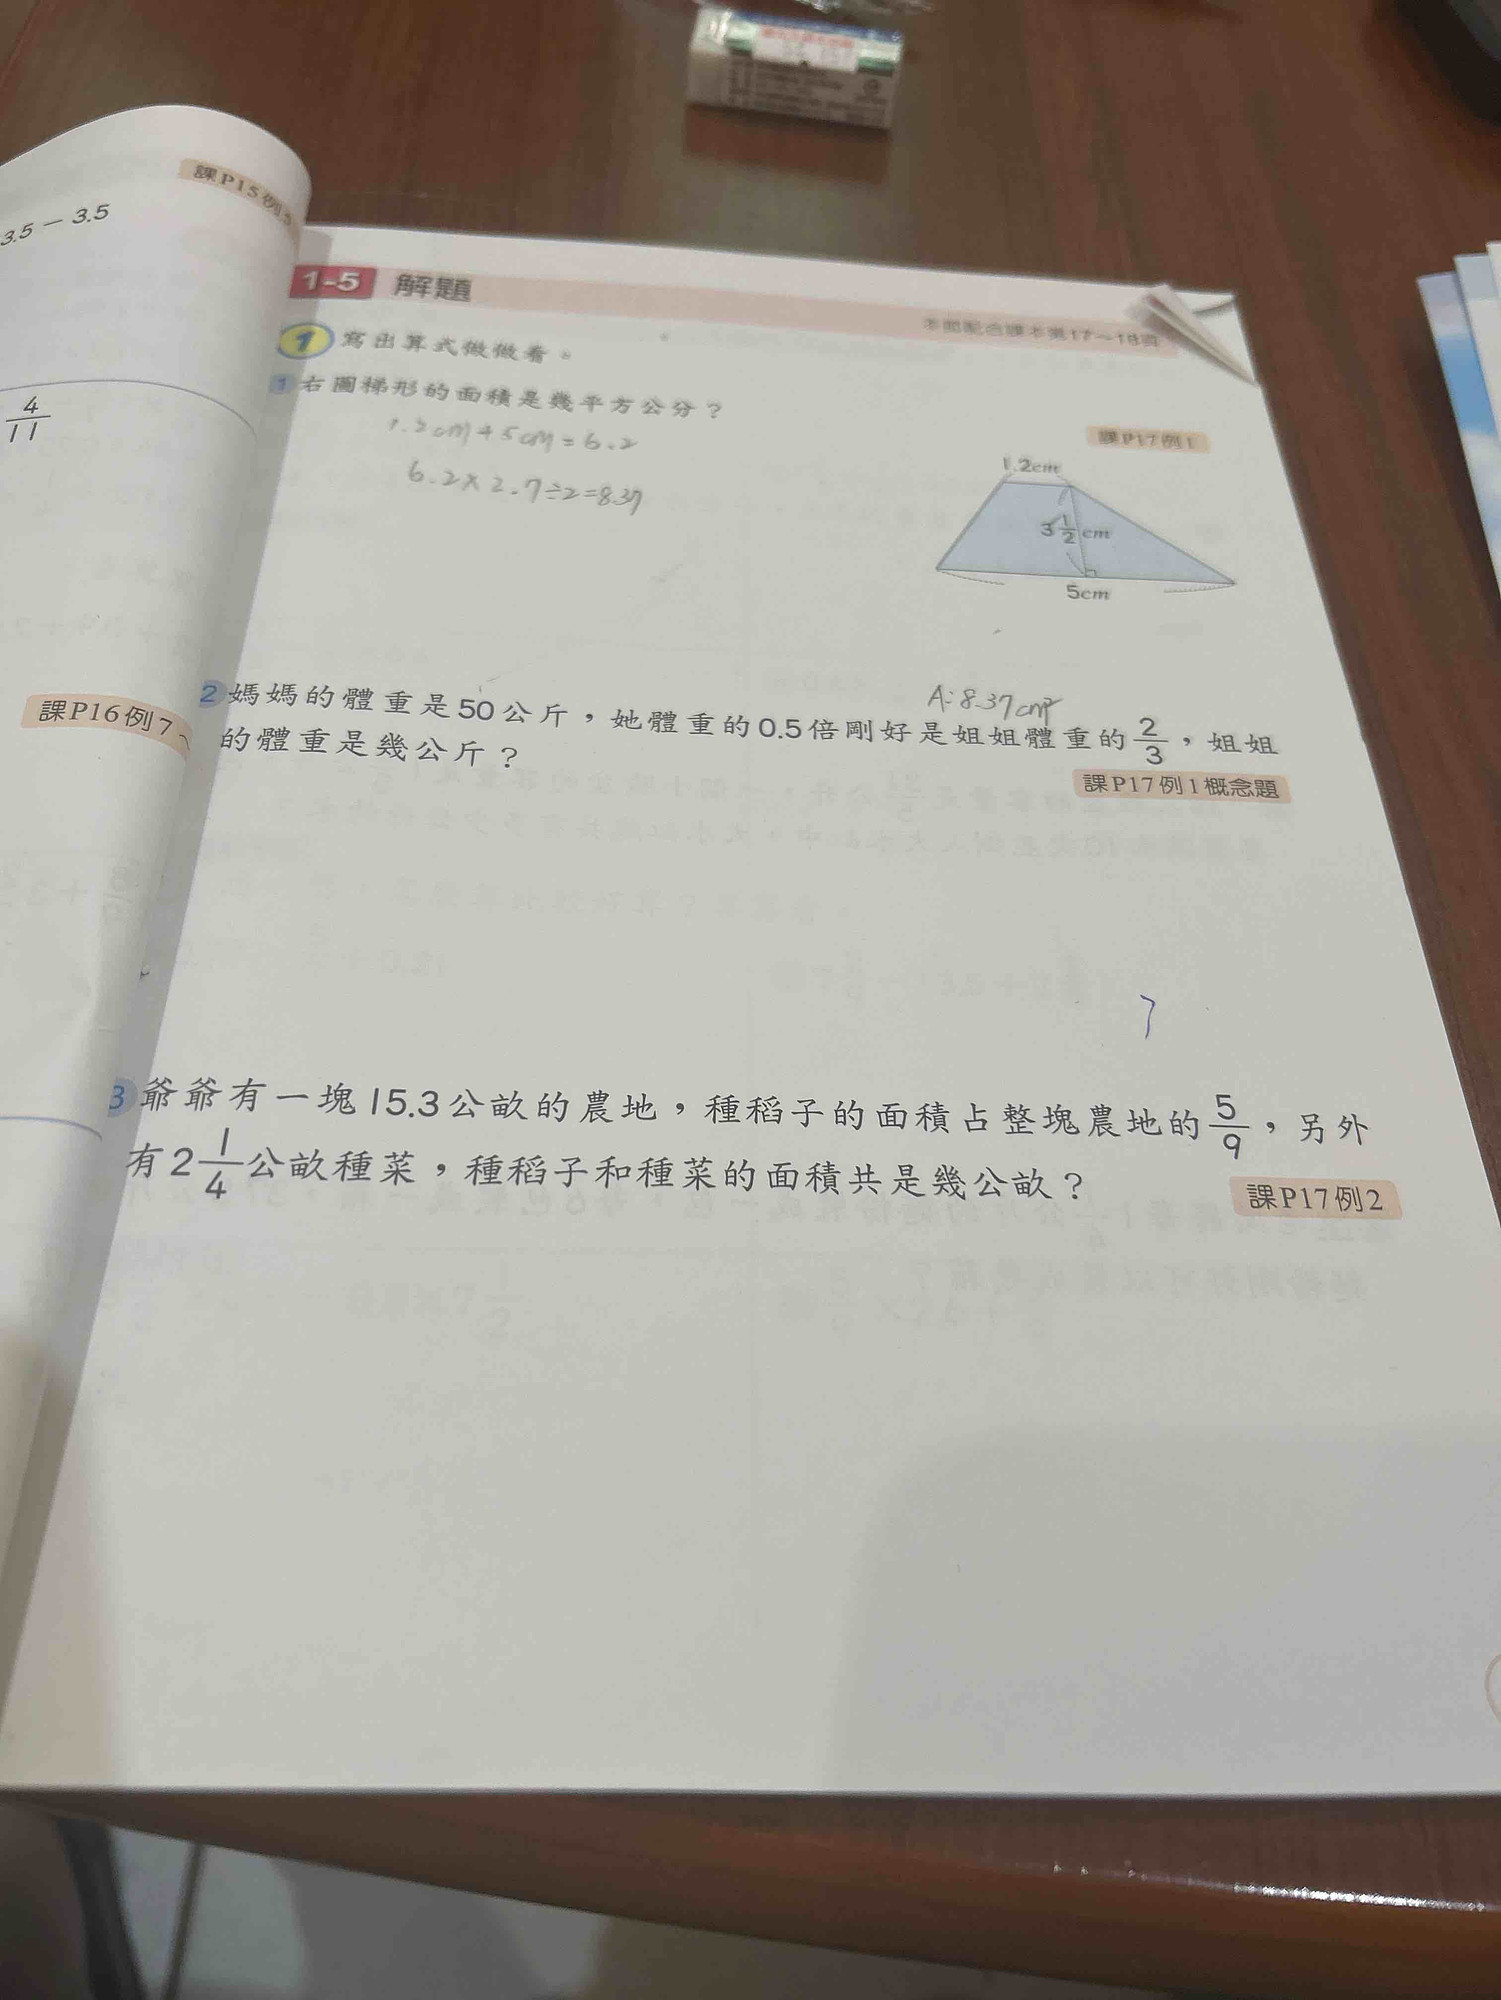 課P15例5
3.5－3.5
4
11
課P16例7
1-5 解題
本面配合課本第17～18頁
1 寫出算式做做看。
1 右圖梯形的面積是幾平方公分？
1.2cm+5cm=6.2
6.2×2.7÷2=8.37
課P17例1
1.2cm
3 1/2 cm
5cm
A:8.37cm²
2 媽媽的體重是50公斤，她體重的0.5倍剛好是姐姐體重的2/3，姐姐
的體重是幾公斤？
課P17例1概念題
3 爺爺有一塊15.3公畝的農地，種稻子的面積占整塊農地的5/9，另外
有2 1/4公畝種菜，種稻子和種菜的面積共是幾公畝？
課P17例2